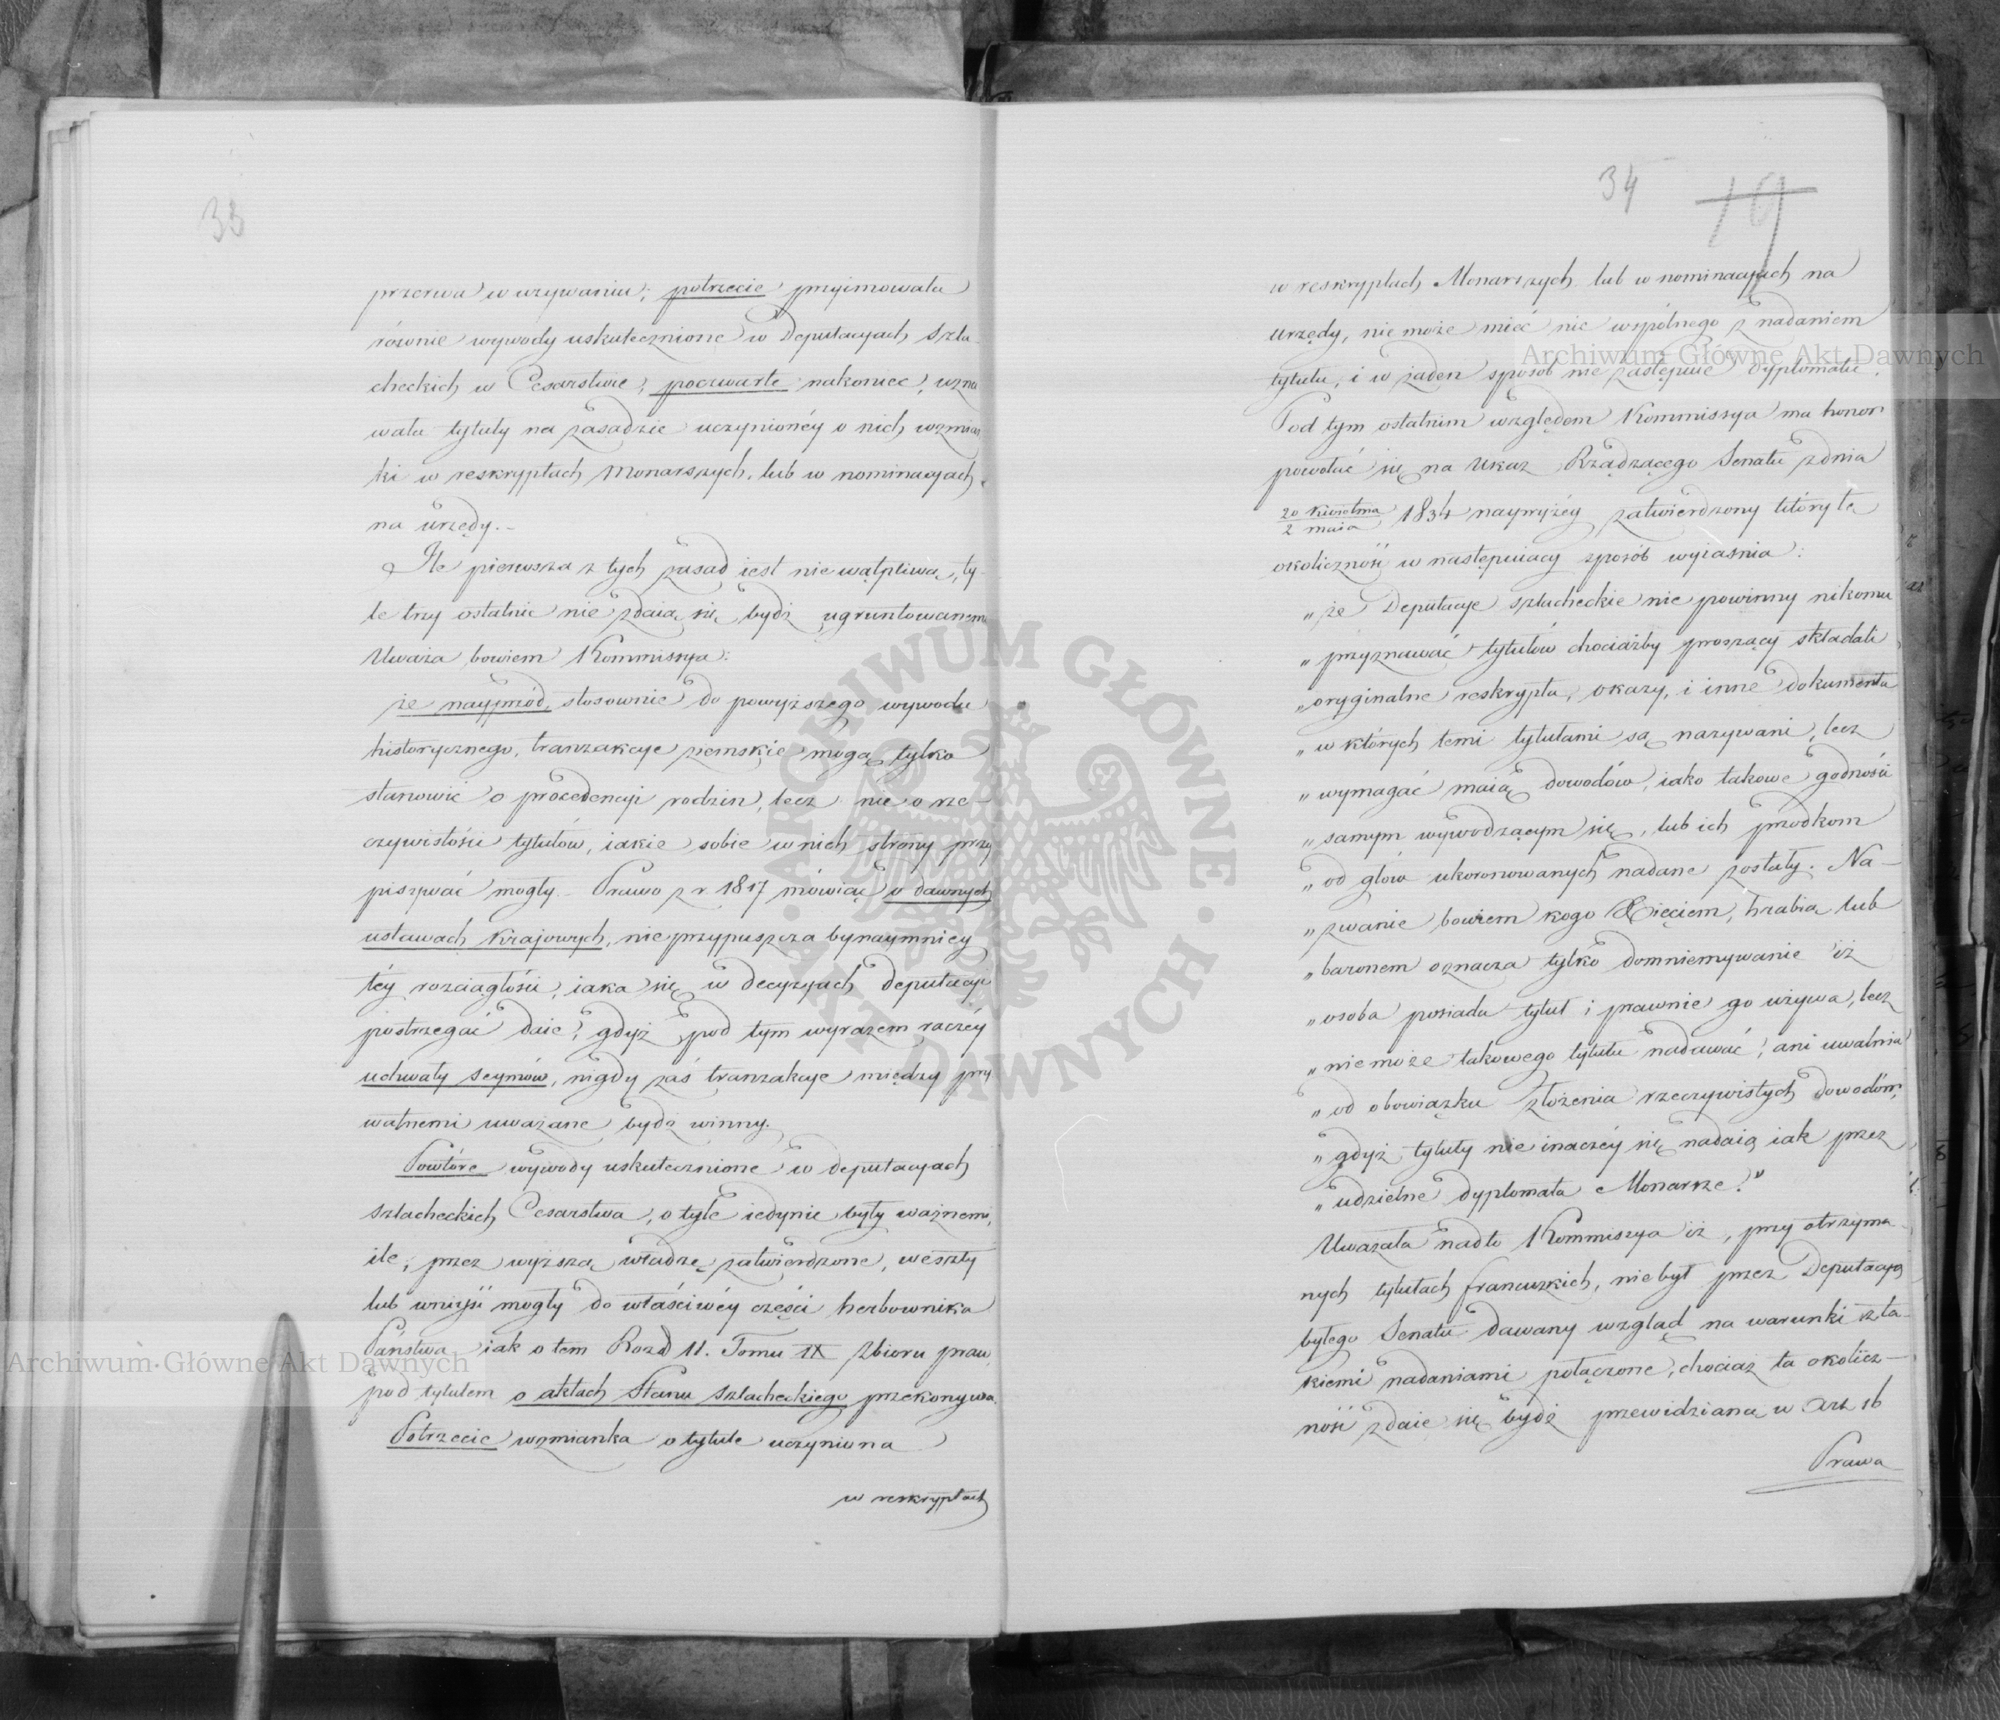 33
przerwa w używaniu; potrzecie przyimowała
równie wywody uskutecznione w Deputacyach Szla-
checkich w Cesarstwie, poczwarte nakoniec, uzna
wała tytuły na zasadzie uczynionéy o nich wzmian
ki w reskryptach Monarszych, lub w nominacyach
na urzędy. –
Ile pierwsza z tych zasad iest niewątpliwą, ty-
le trzy ostatnie nie zdaią się bydź ugruntowanemi
Uważa bowiem Kommissya:
że nayprzód, stosownie do powyższego wywodu
historycznego, tranzakcye ziemskie mogą tylko
stanowić o procedencyi rodzin, lecz nie o rze-
czywistości tytułów, iakie sobie w nich strony przy
pisywać mogły. – Prawo z r 1817 mówiąc o dawnych
ustawach Krajowych, nie przypuszcza bynaymniey
téy rozciągłości, iaka się w decyzyach deputacyi
postrzegać daie, gdyż pod tym wyrazem raczéy
uchwały seymów, nigdy zaś tranzakcye między pry
watnemi uważane bydź winny.
Powtóre wywody uskutecznione w deputacyach
szlacheckich Cesarstwa, o tyle iedynie były ważnemi,
ile, przez wyższą władzę zatwierdzone, weszły
lub wniyść mogły do właściwéy części herbownika
Państwa iak o tem Rozd 11. Tomu IX zbioru praw
pod tytułem o aktach Stanu szlacheckiego przekonywa.
Potrzecie wzmianka o tytule uczyniona
w reskryptach
34 19
w reskryptach Monarszych lub w nominacyach na
urzędy, nie może mieć nic wspólnego z nadaniem
tytułu, i w żaden sposób nie zastępuie dyplomatu.
Pod tym ostatnim względem Kommissya ma honor
powołać się na Ukaz Rządzącego Senatu z dnia
20 Kwietnia
2 maia 1834 naywyżéy zatwierdzony który tę
okoliczność w następuiący sposób wyiaśnia:
„że Deputacye szlacheckie nie powinny nikomu
„przyznawać tytułów chociażby proszący składali
„oryginalne reskrypta, ukazy, i inne dokumenta
„w których temi tytułami są nazywani, lecz
„wymagać maią dowodów, iako takowe godności
„samym wywodzącym się, lub ich przodkom
„od głów ukoronowanych nadane zostały. Na-
„zwanie bowiem kogo Xięciem, hrabią lub
„baronem oznacza tylko domniemywanie iż
„osoba posiada tytuł i prawnie go używa, lecz
„nie może takowego tytułu nadawać, ani uwalnia
„od obowiązku złożenia rzeczywistych dowodów,
„gdyż tytuły nie inaczéy się nadaią iak przez
„udzielne dyplomata Monarsze."
Uważała nadto Kommissya iż, przy otrzyma-
nych tytułach francuzkich, nie był przez Deputacyą
byłego Senatu dawany wzgląd na warunki z ta-
kiemi nadaniami połączone, chociaż ta okolicz-
ność zdaie się bydź przewidziana w Art 16
Prawa
Archiwum Główne Akt Dawnych
Archiwum Główne Akt Dawnych
ARCHIWUM GŁÓWNE
AKT DAWNYCH